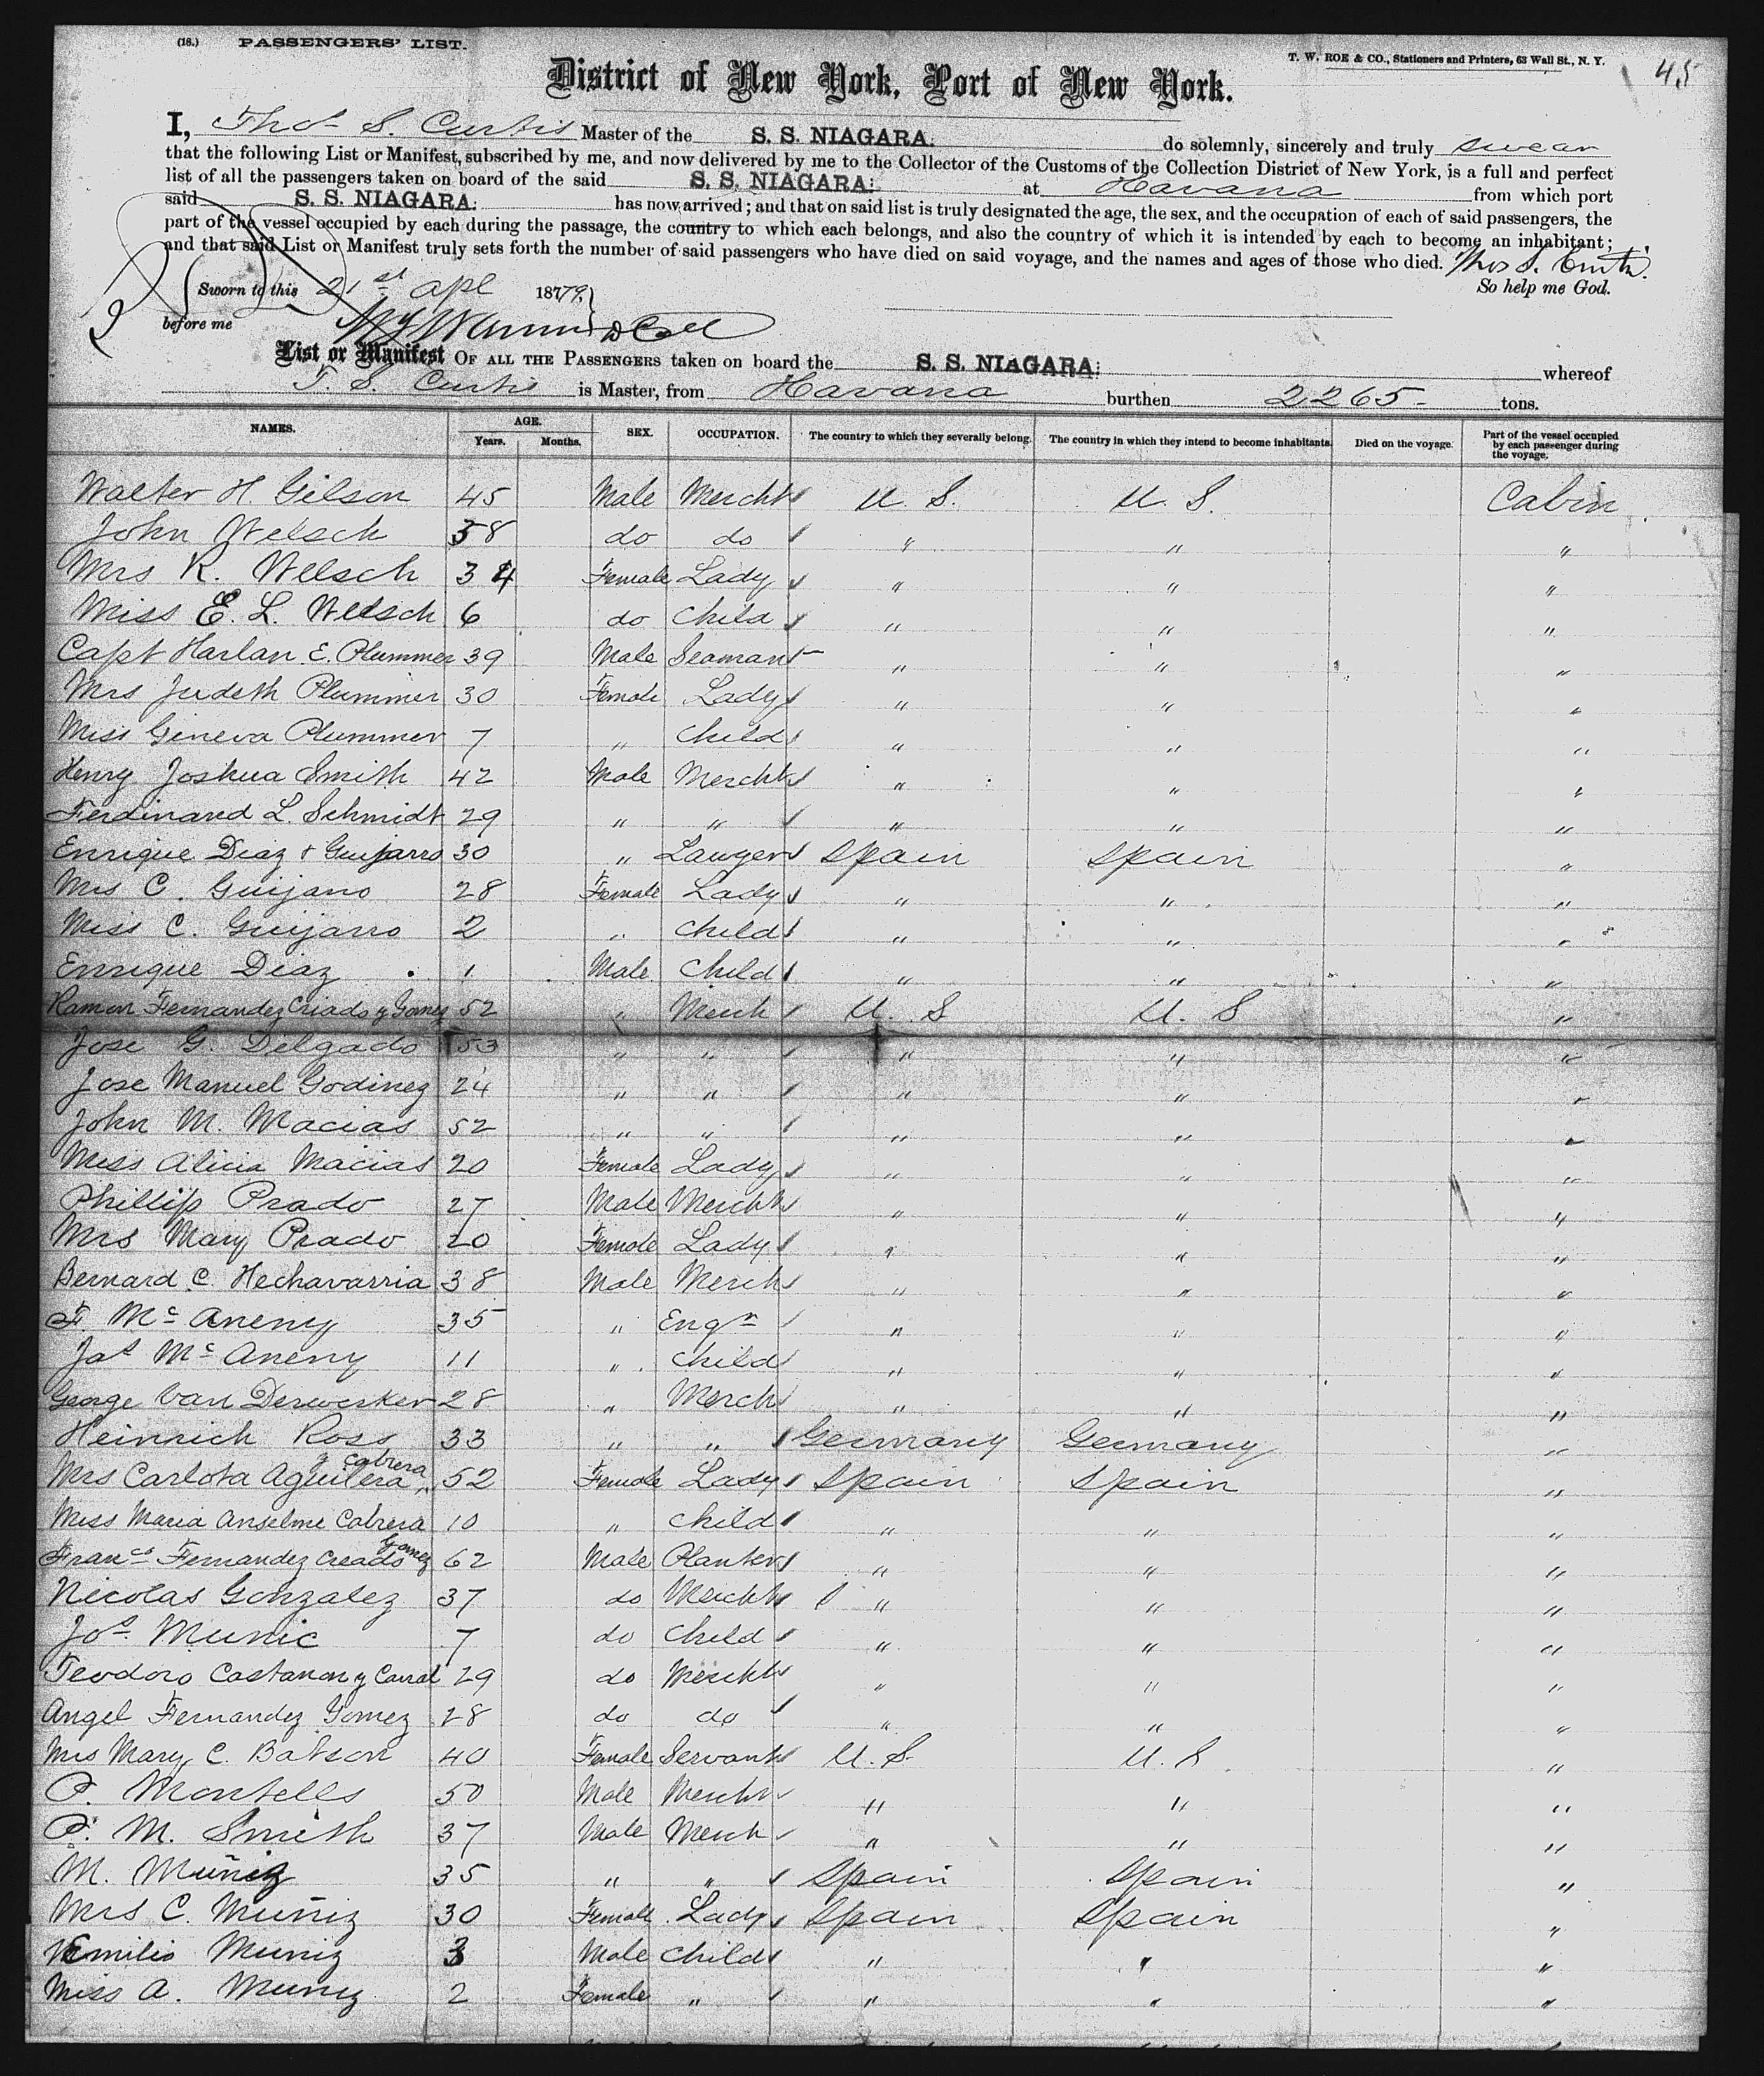 (18.) PASSENGERS' LIST.
T. W. ROE & CO., Stationers and Printers, 63 Wall St., N. Y.
45
District of New York, Port of New York.
I, Thos S. Curtis Master of the S. S. NIAGARA. do solemnly, sincerely and truly swear
that the following List or Manifest, subscribed by me, and now delivered by me to the Collector of the Customs of the Collection District of New York, is a full and perfect
list of all the passengers taken on board of the said S. S. NIAGARA. at Havana from which port
said S. S. NIAGARA. has now arrived; and that on said list is truly designated the age, the sex, and the occupation of each of said passengers, the
part of the vessel occupied by each during the passage, the country to which each belongs, and also the country of which it is intended by each to become an inhabitant;
and that said List or Manifest truly sets forth the number of said passengers who have died on said voyage, and the names and ages of those who died. Thos S. Curtis.
Sworn to this 21st Apl 1879. So help me God.
before me
List or Manifest OF ALL THE PASSENGERS taken on board the S. S. NIAGARA. whereof
T. S. Curtis is Master, from Havana burthen 2265 tons.
NAMES. AGE. Years. Months. SEX. OCCUPATION. The country to which they severally belong. The country in which they intend to become inhabitants. Died on the voyage. Part of the vessel occupied by each passenger during the voyage.
Walter H. Gilson 45 Male Mercht U. S. U. S. Cabin
John Welsch 38 do do " " "
Mrs K. Welsch 34 Female Lady " " "
Miss E. L. Welsch 6 do Child " " "
Capt Harlan E. Plummer 39 Male Seaman " " "
Mrs Judeth Plummer 30 Female Lady " " "
Miss Geneva Plummer 7 " Child " " "
Henry Joshua Smith 42 Male Mercht " " "
Ferdinand L. Schmidt 29 " " " " "
Enrique Diaz & Guijarro 30 " Lawyer Spain Spain "
Mrs C. Guijarro 28 Female Lady " " "
Miss C. Guijarro 2 " Child " " "
Enrique Diaz 1 Male Child " " "
Ramon Fernandez Criado y Gomez 52 " Merch U. S U. S "
Jose G. Delgado 53 " " " " "
Jose Manuel Godinez 24 " " " " "
John M. Macias 52 " " " " "
Miss Alicia Macias 20 Female Lady " " "
Phillip Prado 27 Male Mercht " " "
Mrs Mary Prado 20 Female Lady " " "
Bernard C. Hechavarria 38 Male Merch " " "
F. Mc Aneny 35 " Engr " " "
Jas Mc Aneny 11 " Child " " "
George Van Derwerker 28 " Merch " " "
Heinrich Ross 33 " " Germany Germany "
Mrs Carlota Aguilera y Cabrera 52 Female Lady Spain Spain "
Miss Maria Anselme Cabrera 10 " Child " " "
Franco Fernandez Creado Gomez 62 Male Planter " " "
Nicolas Gonzalez 37 do Mercht " " "
Jos Munic 7 do Child " " "
Teodoro Castanon y Carral 29 do Mercht " " "
Angel Fernandez Gomez 28 do do " " "
Mrs Mary C. Batson 40 Female Servant U. S. U. S "
P. Montells 50 Male Mercht " " "
P. M. Smith 37 Male Merch " " "
M. Muñiz 35 " " Spain Spain "
Mrs C. Muñiz 30 Female Lady Spain Spain "
Emilio Muniz 3 Male Child " " "
Miss A. Muniz 2 Female " " " "